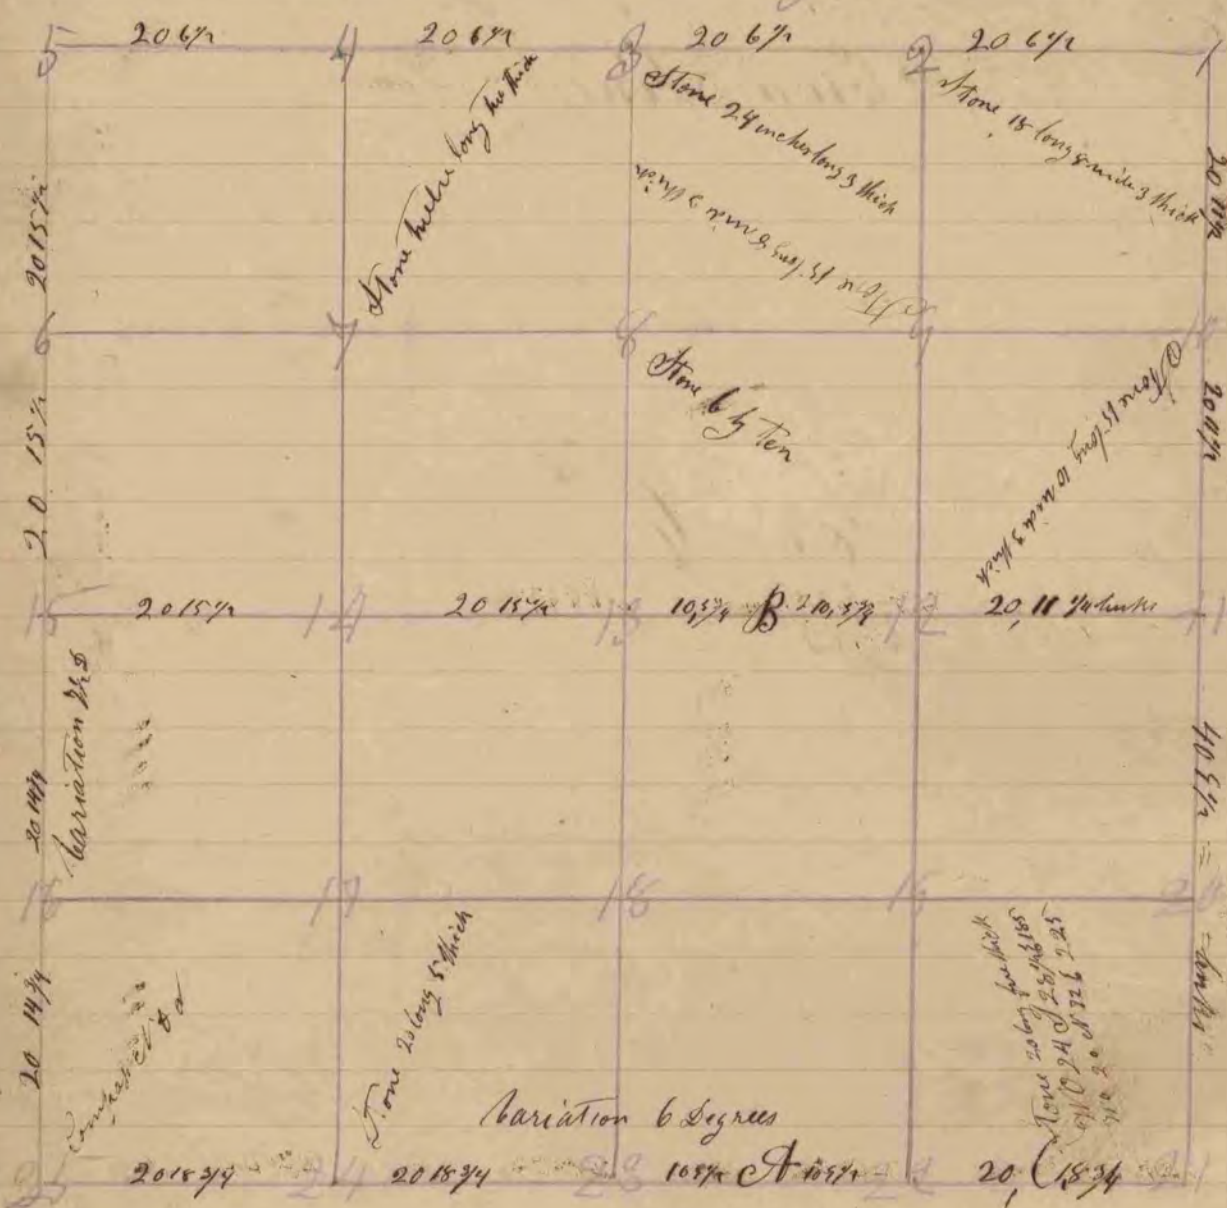 5 20 6½ 4 20 6½ 3 20 6½ 2 20 6½ 1
Stone twelve long two thick
Stone 24 inches long 3 thick
Stone 18 long 8 wide 3 thick
20 15½
20 11½
Stone 15 long 8 wide 3 thick
6 7 8 9 10
Stone 6 by Ten
Stone 15 long 10 wide 3 thick
20 15½
20 11½
15 20 15½ 14 20 15½ 13 10,5¾ B 10,5¾ 12 20, 11 ¼ links 11
Variation
20 14¾
40 5½ = = links
16 17 18 20
20 14¾
Compass
Stone 20 long 5 thick
Stone 20 long five thick
Variation 6 Degrees
25 20 18 3/4 24 20 18 3/4 23 A 22 20, 18 3/4 21